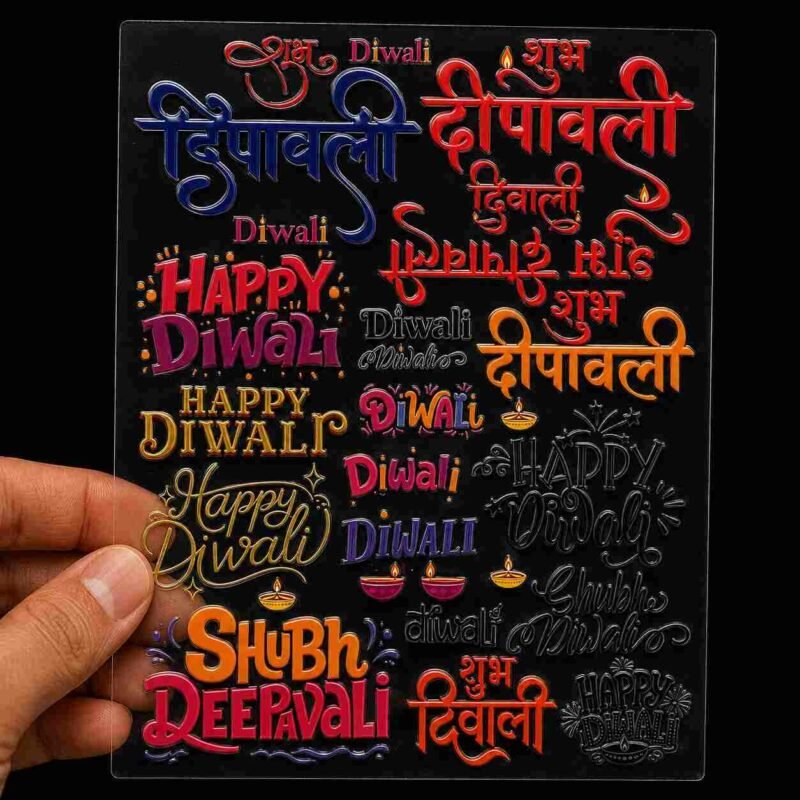 शुभ
Diwali
दिपावली
शुभ
दीपावली
दिवाली
Diwali
शुभ दीपावली
HAPPY
DIWALI
Diwali
Diwali
शुभ
दीपावली
HAPPY
DIWALI
DIWALI
HAPPY
Diwali
Diwali
Happy
Diwali
DIWALI
Shubh
Diwali
diwali
SHUBH
DEEPAVALI
शुभ
दिवाली
HAPPY
DIWALI